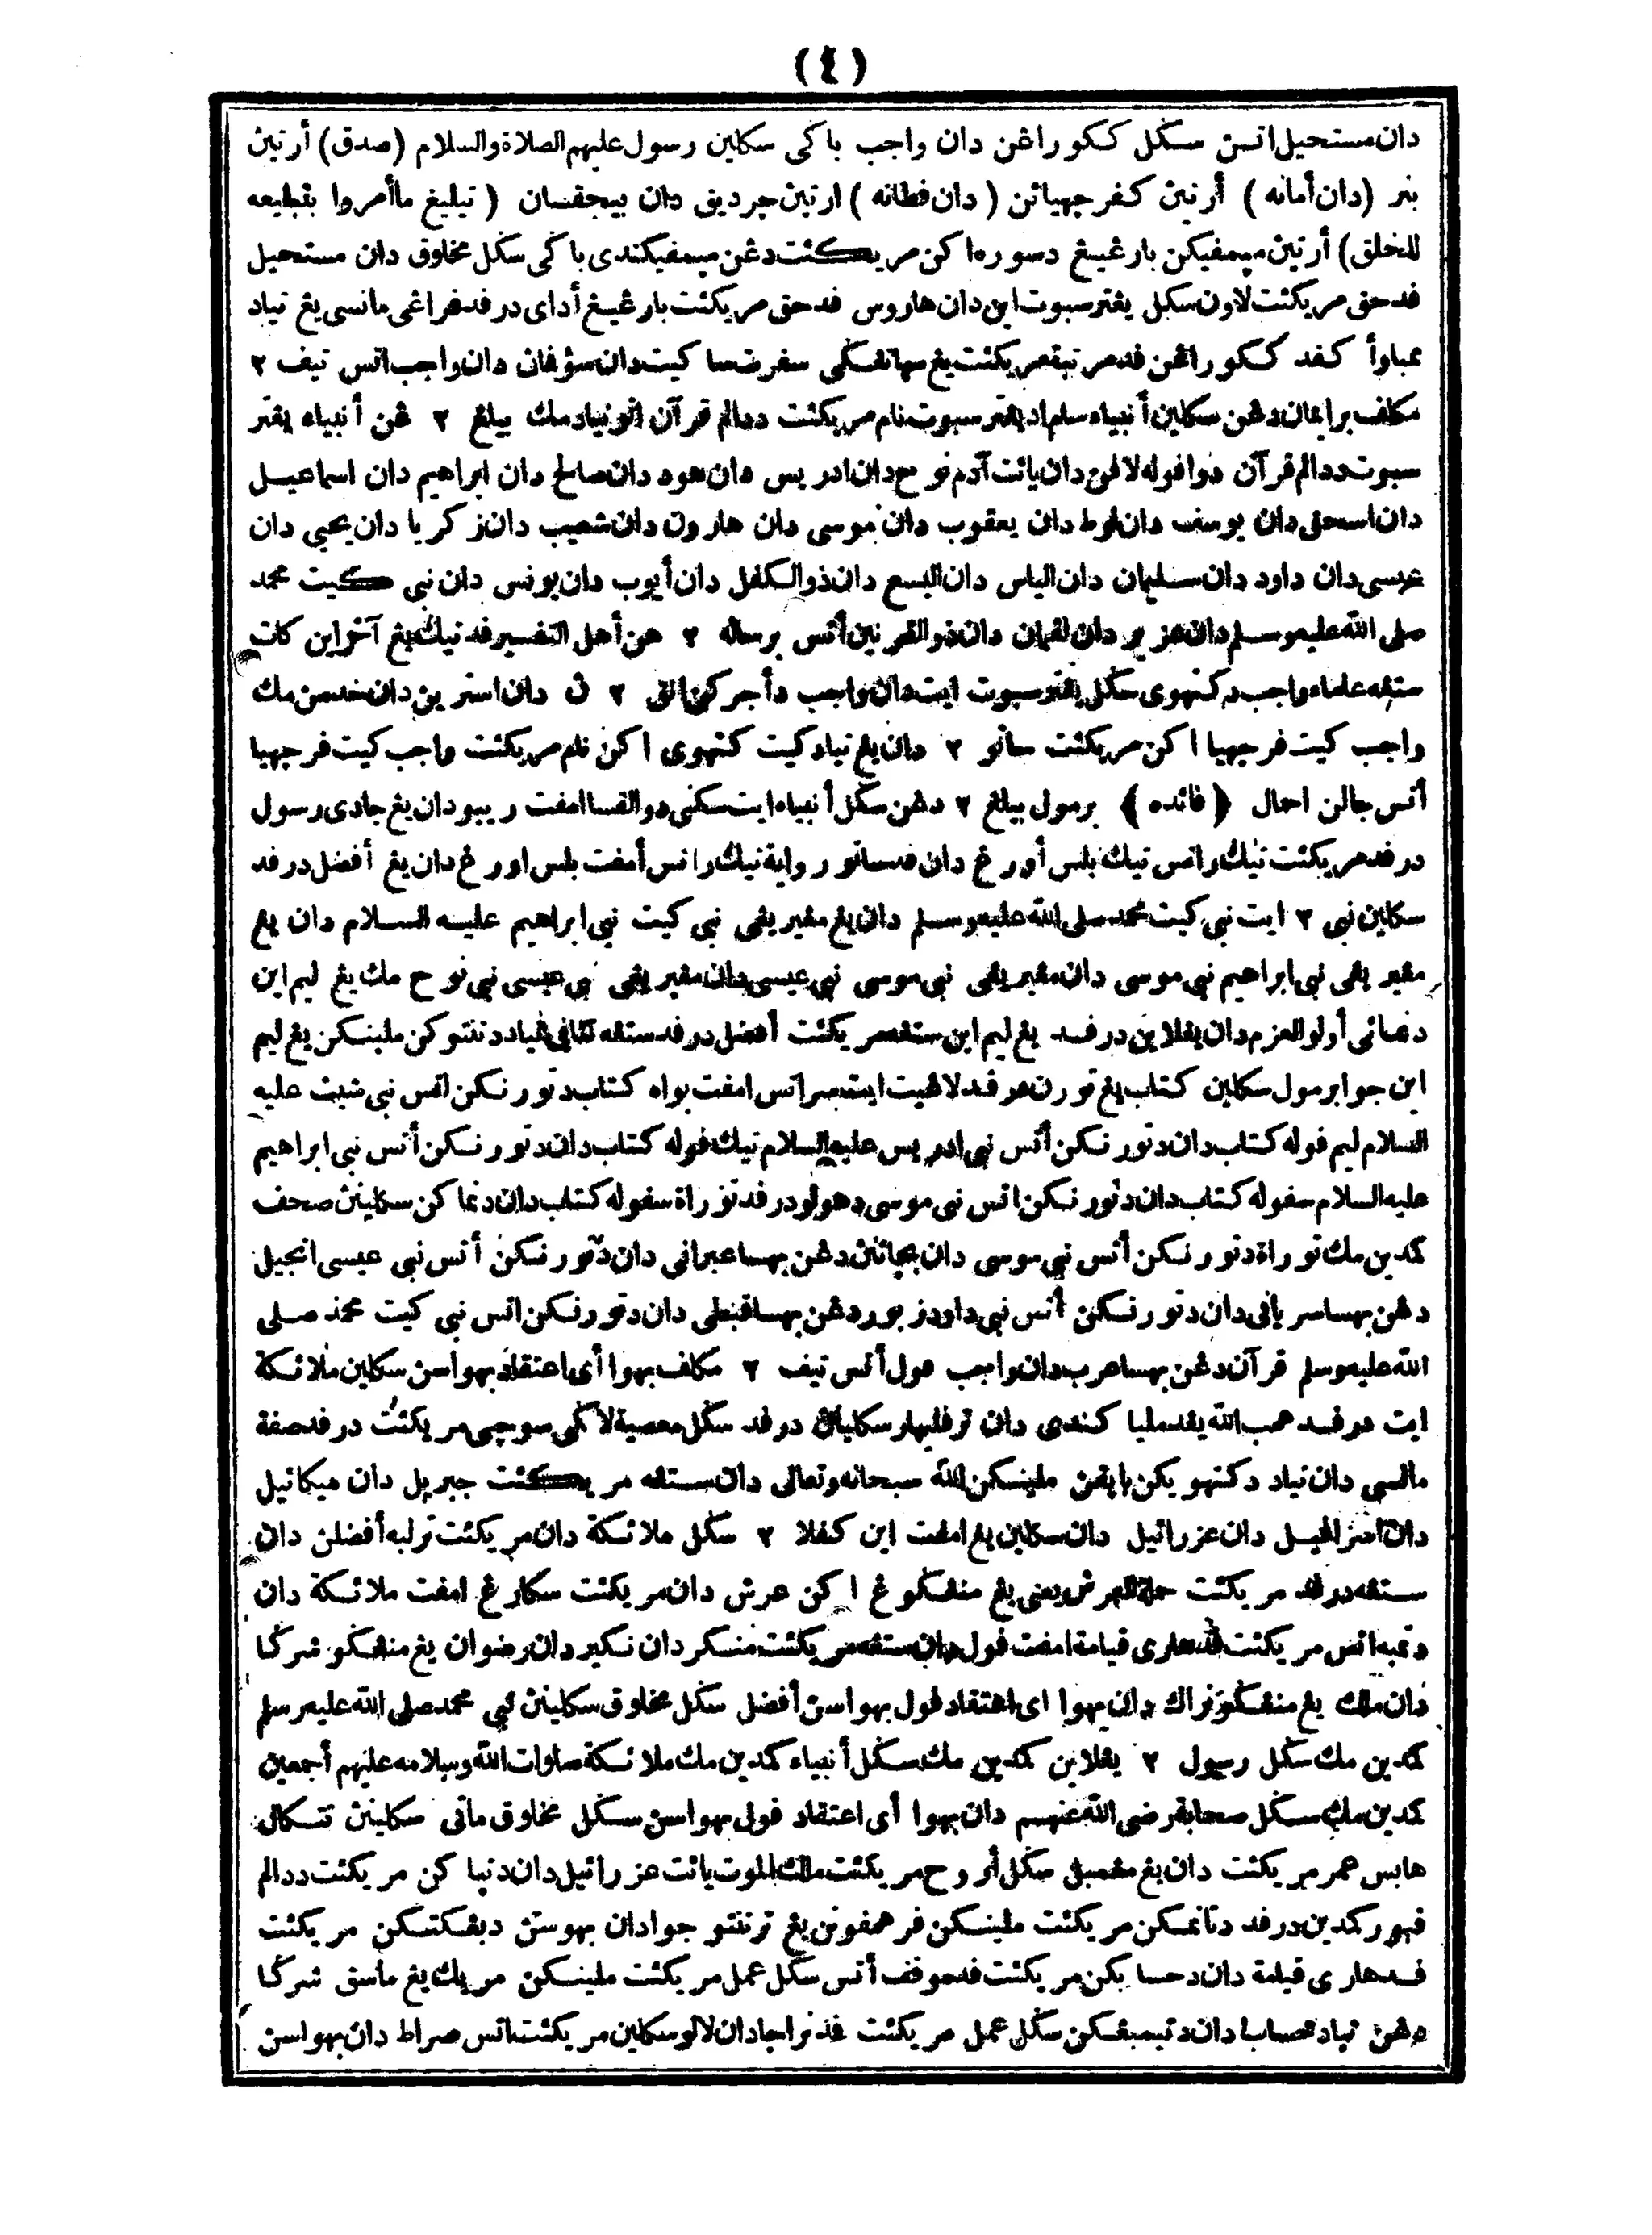 (٤)
دان مستحيل اتسن سݢل ككوراڠن دان واجب باݢي سكلين رسول عليهم الصلاة والسلام (صدق) أرتين
بنر (دان أمانه) أرتين كفرجهيائن (دان فطانه) ارتين چرديق دان بيجقسان (تبليغ ما أمروا بتبليغه
للخلق) أرتين ميمفيكن بارڠيغ دسوره اكن مريكئت دڠن ميمفيكندي باݢي سݢل مخلوق دان مستحيل
فد حق مريكئت لاون سݢل يڠترسبوت اين دان هاروس فد حق مريكئت بارڠيغ أداي درفد فراڠي مانسي يغ تياد
ممباوأ كفد ككوراڠن فد مرتبة مريكئت يغ مهاتڠݢي سفرت ساكيت دان سؤفمان دان واجب اتس تيف ٢
مكلف برايمان دڠن سكلين أنبياء سام اد يڠترسبوت نام مريكئت ددالم قرآن اتو تياد مك بيلڠ ٢ ڠن أنبياء يڠتر
سبوت ددالم قرآن دوافوله لافن دان يائت آدم نوح دان ادريس دان هود دان صالح دان ابراهيم دان اسماعيل
دان اسحق دان يوسف دان لوط دان يعقوب دان موسى دان هارون دان شعيب دان زكريا دان يحيى دان
عيسى دان داود دان سليمان دان الياس دان اليسع دان ذوالكفل دان أيوب دان يونس دان نبي كيت محمد
صلى الله عليه وسلم دان عزير دان لقمان دان ذوالقرنين أتس برساله ٢ هن أهل التفسير فد تيݢ يغ آخر اين كات
ستڠه علماء واجب دكتهوي سݢل يڠترسبوت ايت دان واجب دأجركن انق ٢ ن دان استرين دان خدمن مك
واجب كيت فرجهيا اكن مريكئت ساتو ٢ دان يغ تياد كيت كتهوي اكن نام مريكئت واجب كيت فرجهيا
أتس جالن اجمال ﴿فائده﴾ برمول بيلڠ ٢ دهن سݢل أنبياء ايت سكتي دوالقسا امفت ريبو دان يغ جادي رسول
درفد مريكئت تيݢ راتس تيݢ بلس أورڠ دان فد ساتو رواية تيݢ راتس أمفت بلس اورڠ دان يغ أفضل درفد
سكلين نبي ٢ ايت نبي كيت محمد صلى الله عليه وسلم دان يغ مڠيريڠي نبي كيت نبي ابراهيم عليه السلام دان يغ
مڠيريڠي نبي ابراهيم نبي موسى دان مڠيريڠي نبي موسى نبي عيسى دان مڠيريڠي نبي عيسى نبي نوح مك يغ ليم اين
دنمائي أولو العزم دان يڠلاين درفد يغ ليم اين ستڠه مريكئت أفضل درفد ستڠه تتافي تياد دتنتوكن ملينكن يغ ليم
اين جوا برمول سكلين كتاب يغ تورن درفد لاڠيت ايت سراتس امفت بواه كتاب دتورنكن اتس نبي شيث عليه
السلام ليم فوله كتاب دان دتورنكن أتس نبي ادريس عليه السلام تيݢ فوله كتاب دان دتورنكن أتس نبي ابراهيم
عليه السلام سفوله كتاب دان دتورنكن اتس نبي موسى دهولو درفد توراة سفوله كتاب دان دنماكن سكلينن صحف
كمدين مك توراة دتورنكن أتس نبي موسى دان بچائنن دڠن بهسا عبراني دان دتورنكن أتس نبي عيسى انجيل
دڠن بهسا سرياني دان دتورنكن أتس نبي داود زبور دڠن بهسا قبطي دان دتورنكن اتس نبي كيت محمد صلى
الله عليه وسلم قرآن دڠن بهسا عرب دان واجب فول أتس تيف ٢ مكلف بهوا أي اعتقاد بهواسن سكلين ملائكة
ايت درفد همب الله يڠ ملياكندي دان ترفليهارسكلين درفد سݢل معصية لاݢي سوچي مريكئت درفد صفة
مانسي دان تياد دكتهوي كن باپقن ملينكن الله سبحانه وتعالى دان ستڠه مريكئت جبريل دان ميكائيل
دان اسرافيل دان عزرائيل دان سكلين يغ امفت اين كفلا ٢ سݢل ملائكة دان مريكئت ترلبه أفضلن دان
ستڠه درفد مريكئت حملة العرش يعني يغ منڠكوڠ اكن عرش دان مريكئت سكارغ امفت ملائكة دان
دتمبه اتس مريكئت فد هاري قيامة امفت فول دان ستڠه مريكئت منكر دان نكير دان رضوان يغ منڠكو شركا
دان ملك يغ منڠكو نراك دان بهوا اي اعتقاد فول بهواسن أفضل سݢل مخلوق سكلينن نبي محمد صلى الله عليه وسلم
كمدين مك سݢل رسول ٢ يڠلاين كمدين مك سݢل أنبياء كمدين مك ملائكة صلوات الله وسلامه عليهم أجمعين
كمدين مك سݢل صحابة رضي الله عنهم دان بهوا أي اعتقاد فول بهواسن سݢل مخلوق ماتي سكلينن تتكال
هابس عمر مريكئت دان يغ مڠمبل سݢل أروح مريكئت ملك الموت يائت عزرائيل دان دتياكن مريكئت ددالم
قبور كمدين درفد دتانمكن مريكئت ملينكن فرهمفونن يغ ترتنتو جوا دان بهوسن دبڠكتكن مريكئت
فد هاري قيامة دان دحسابكن مريكئت فد موقف أتس سݢل عمل مريكئت ملينكن مريك يغ ماسق شركا
دڠن تياد حساب دان دتيمبڠكن سݢل عمل مريكئت فد نراجا دان لالو سكلين مريكئت اتس صراط دان بهواسن